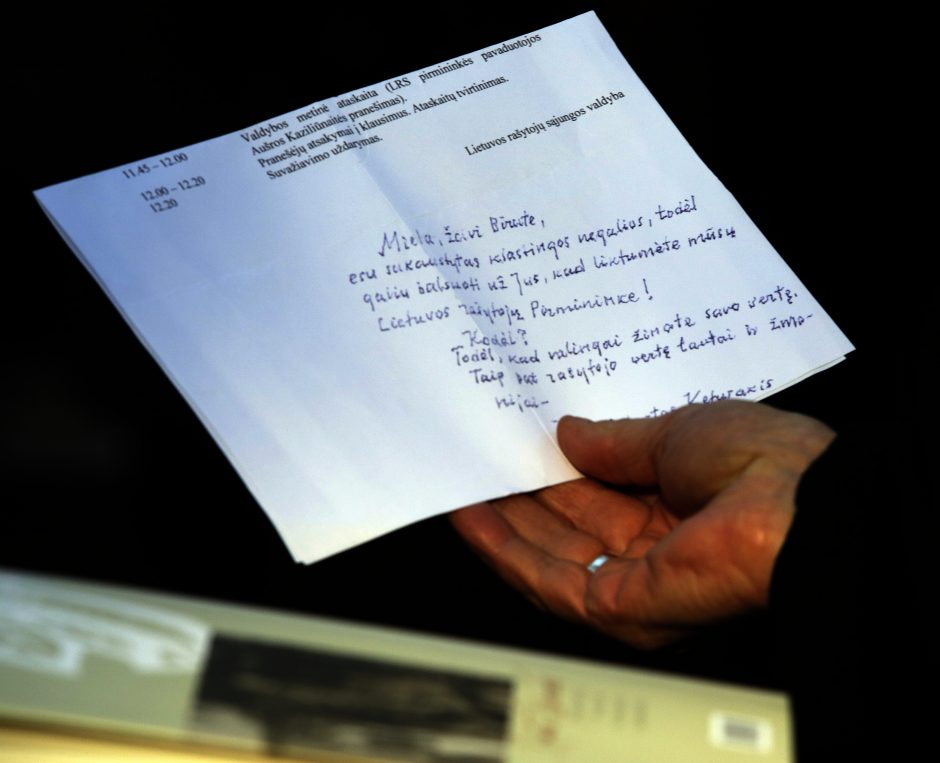 Valdybos metinė ataskaita (LRS pirmininkės pavaduotojos
Aušros Kaziliūnaitės pranešimas).
11.45 – 12.00 Pranešėjų atsakymai į klausimus. Ataskaitų tvirtinimas.
12.00 – 12.20 Suvažiavimo uždarymas.
12.20
Lietuvos rašytojų sąjungos valdyba
Miela, žavi Birute,
esu sukaustytas klastingos negalios, todėl
galiu balsuoti už Jus, kad liktumėte mūsų
Lietuvos rašytojų Pirmininke!
Kodėl?
Todėl, kad valingai žinote savo vertę.
Taip pat rašytojo vertę tautai ir žmo-
nijai –
Keturakis